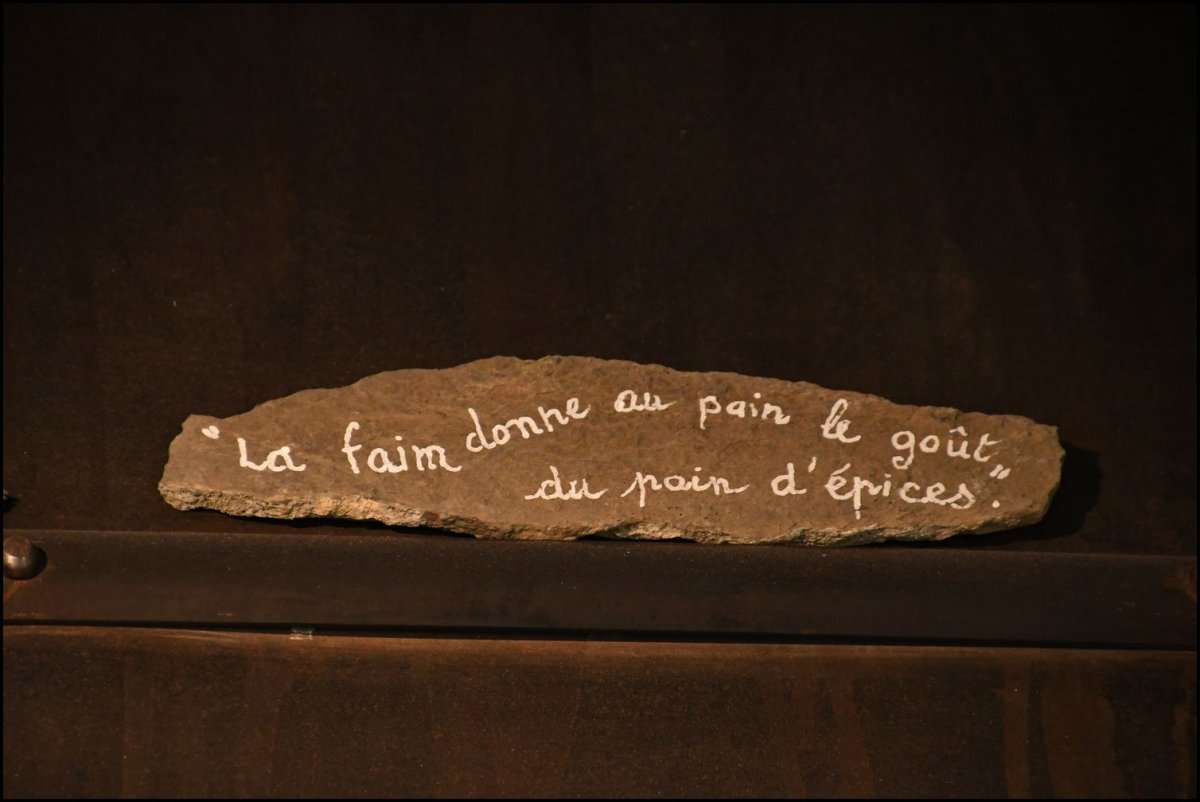 "La faim donne au pain le goût
du pain d'épices".